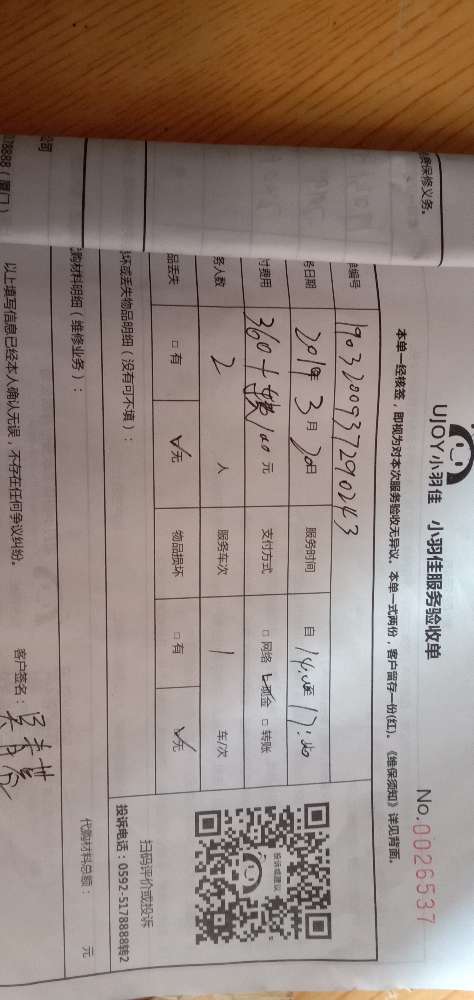 UJOY小羽佳 小羽佳服务验收单
No.0026537
本单一经核签，即视为对本次服务验收无异议。本单一式两份，客户留存一份(红)。《维保须知》详见背面。
编号 1903200937290243
务日期 2019年 3月 20日 服务时间 自 14:00至 17:40
付费用 360+ 100元 支付方式 □ 网络 现金 □ 转账
务人数 2 人 服务车次 1 车/次
品丢失 □ 有 ☑ 无 物品损坏 □ 有 ☑ 无
坏或丢失物品明细（没有可不填）：
投诉或建议
扫码评价或投诉
投诉电话：0592-5178888转2
购材料明细（维修业务）：
代购材料总额： 元
以上填写信息已经本人确认无误，不存在任何争议纠纷。
客户签名：
保修义务。
司
178888（厦门）